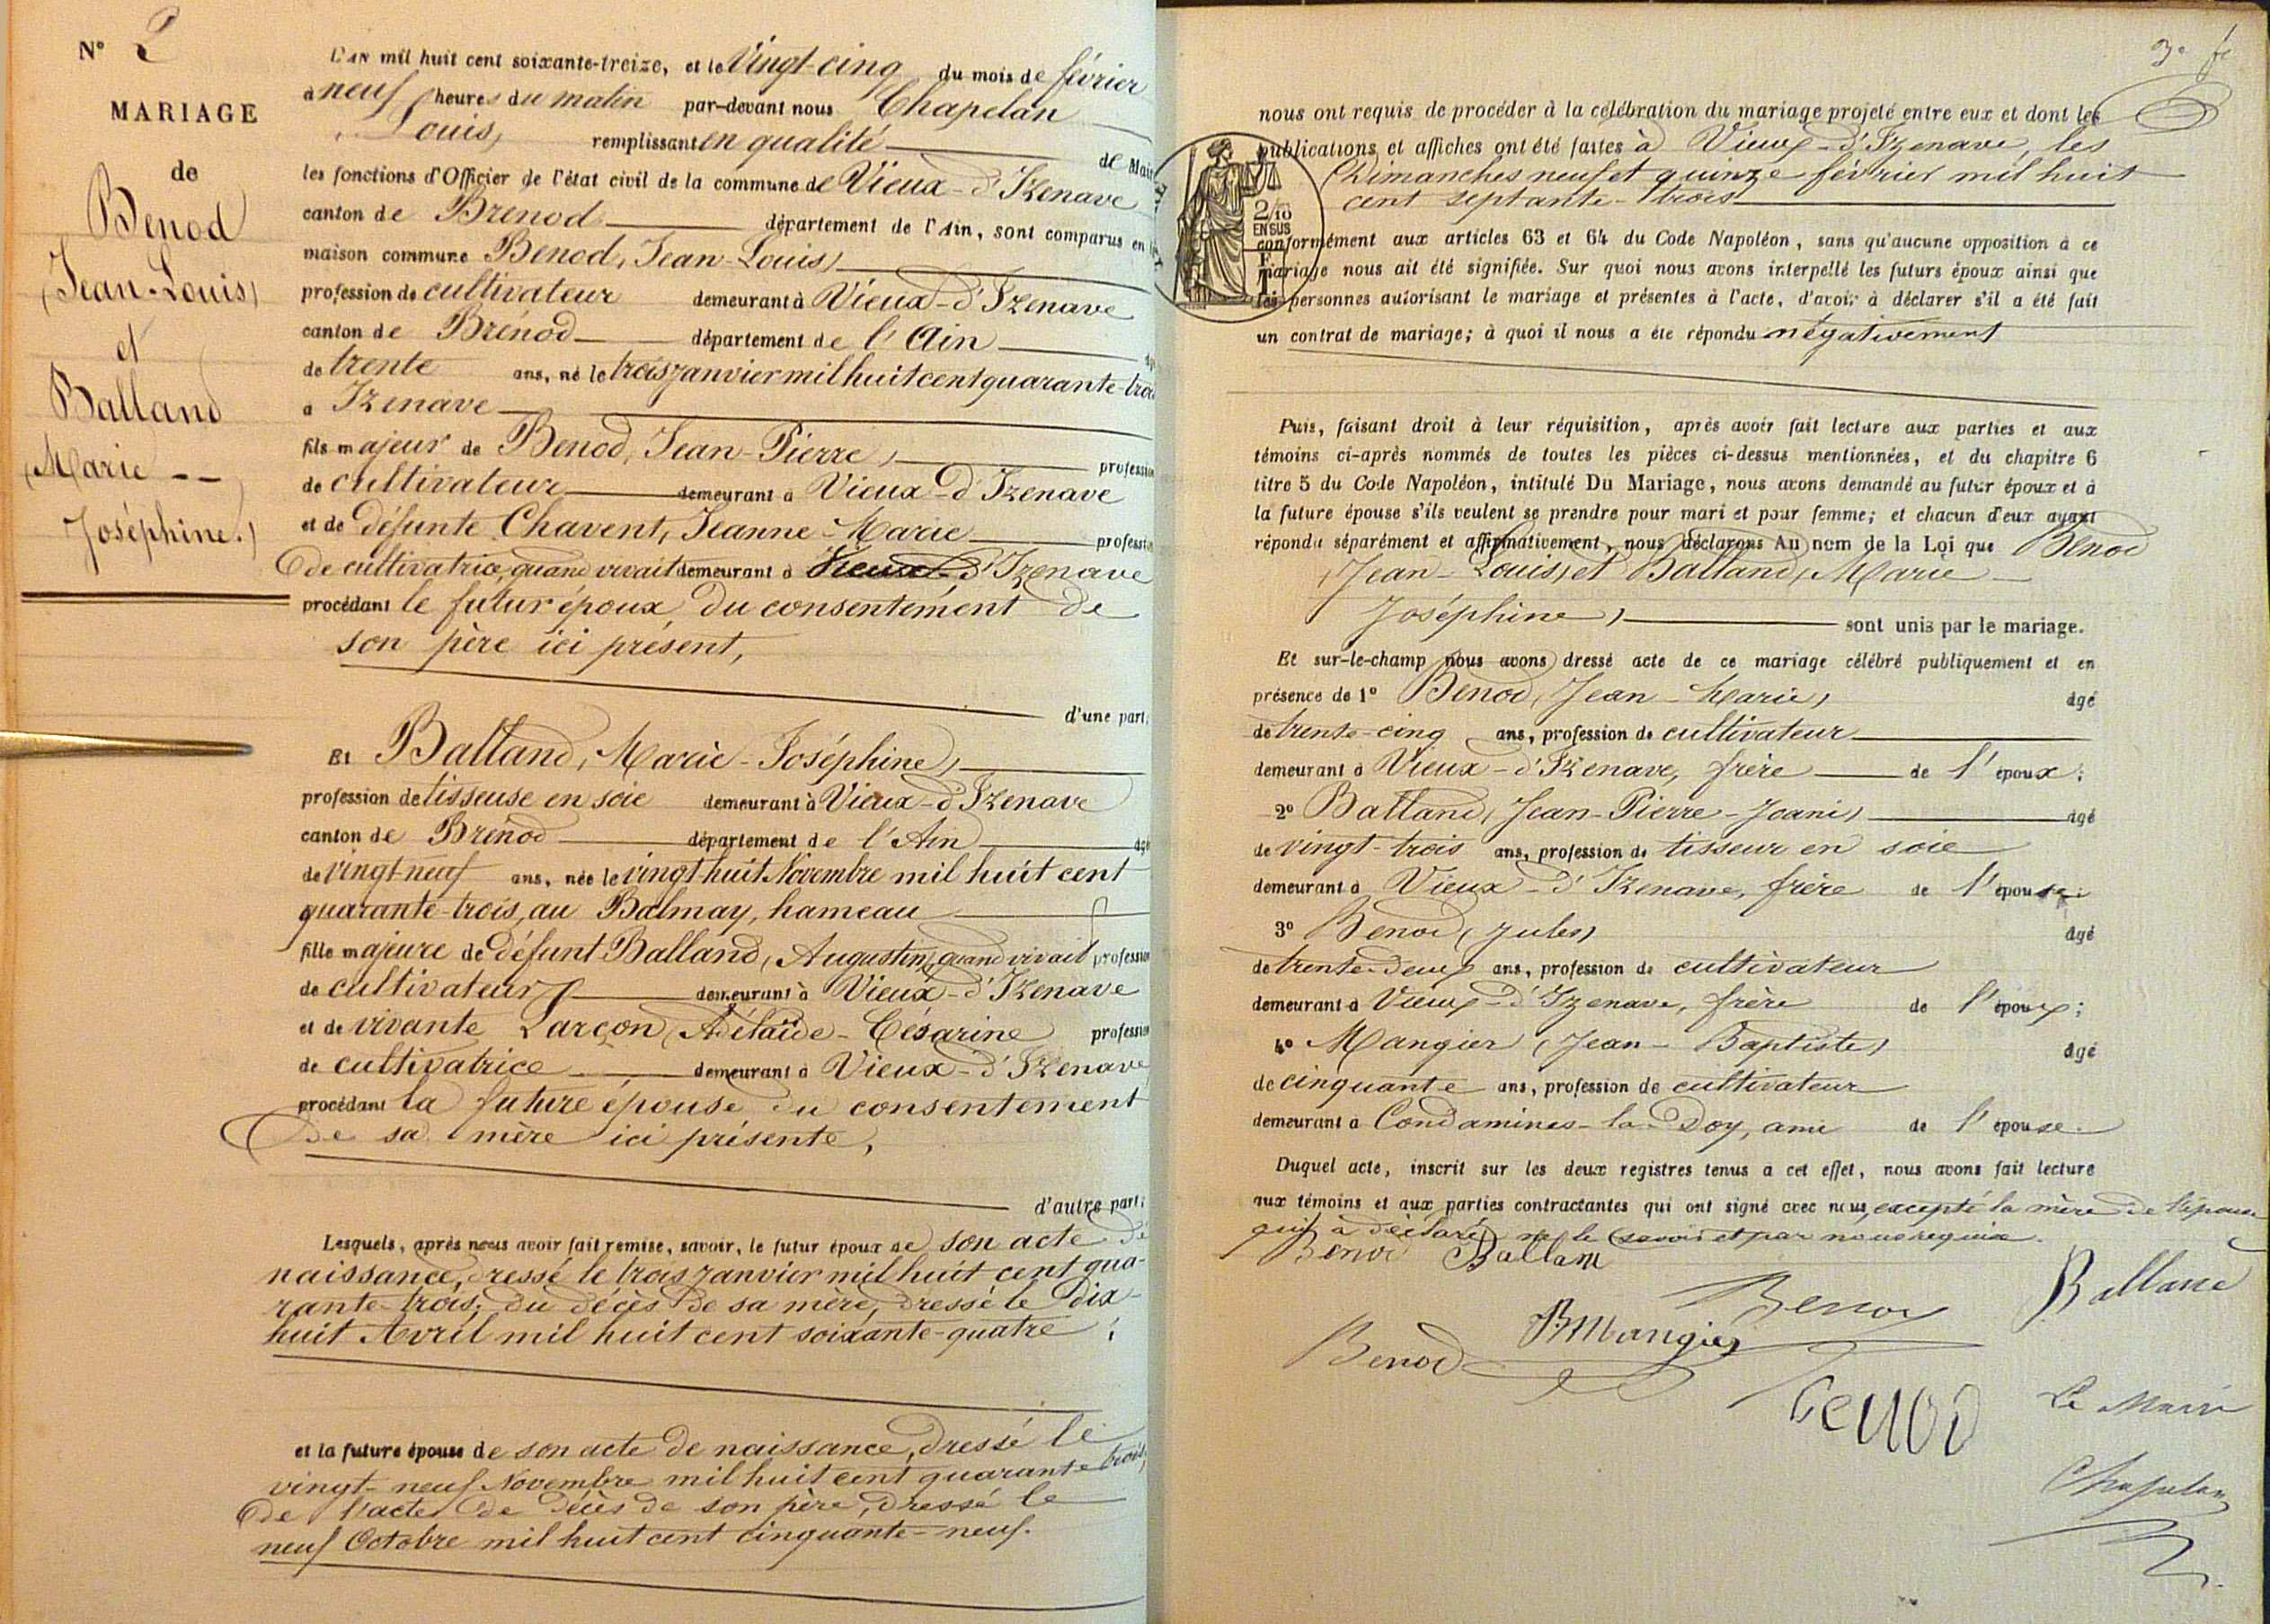 N° 2
MARIAGE
de
Benod
(Jean-Louis)
et
Balland
(Marie --
Joséphine.)
L'AN mil huit cent soixante-treize, et le Vingt-cinq du mois de février
à neuf heures du matin par-devant nous Chapelan
Louis, remplissant en qualité de Mair
les fonctions d'Officier de l'état civil de la commune de Vieux-d'Izenave
canton de Brenod département de l'Ain, sont comparus en
maison commune Benod, Jean-Louis,
profession de cultivateur demeurant à Vieux-d'Izenave
canton de Brénod département de l'Ain
de trente ans, né le trois janvier mil huit cent quarante-trois
à Izenave
fils majeur de Benod, Jean-Pierre, profession
de cultivateur demeurant à Vieux-d'Izenave
et de défunte Chavent, Jeanne-Marie profession
de cultivatrice, quand vivait demeurant à Vieux-d'Izenave
procédant le futur époux, du consentement de
son père ici présent,
d'une part;
Et Balland, Marie-Joséphine,
profession de tisseuse en soie demeurant à Vieux-d'Izenave
canton de Brénod département de l'Ain âgé
de vingt-neuf ans, née le vingt-huit Novembre mil huit cent
quarante-trois, au Balmay, hameau
fille majeure de défunt Balland, (Augustin) quand vivait profession
de cultivateur demeurant à Vieux-d'Izenave
et de vivante Larçon, Adélaïde-Césarine profession
de cultivatrice demeurant à Vieux-d'Izenave
procédant la future épouse du consentement
de sa mère ici présente,
d'autre part;
Lesquels, après nous avoir fait remise, savoir, le futur époux de son acte de
naissance, dressé le trois janvier mil huit cent qua-
rante-trois; du décès de sa mère, dressé le dix-
huit Avril mil huit cent soixante-quatre;
et la future épouse de son acte de naissance, dressé le
vingt-neuf Novembre mil huit cent quarante-trois,
de l'acte de décès de son père, dressé le
neuf Octobre mil huit cent cinquante-neuf.
3e
nous ont requis de procéder à la célébration du mariage projeté entre eux et dont les
publications et affiches ont été faites à Vieux-d'Izenave, les
Dimanches neuf et quinze février mil huit
cent septante-trois
2/10
EN SUS
conformément aux articles 63 et 64 du Code Napoléon, sans qu'aucune opposition à ce
mariage nous ait été signifiée. Sur quoi nous avons interpellé les futurs époux ainsi que
les personnes autorisant le mariage et présentes à l'acte, d'avoir à déclarer s'il a été fait
un contrat de mariage; à quoi il nous a été répondu négativement
Puis, faisant droit à leur réquisition, après avoir fait lecture aux parties et aux
témoins ci-après nommés de toutes les pièces ci-dessus mentionnées, et du chapitre 6
titre 5 du Code Napoléon, intitulé Du Mariage, nous avons demandé au futur époux et à
la future épouse s'ils veulent se prendre pour mari et pour femme; et chacun d'eux ayant
répondu séparément et affirmativement, nous déclarons Au nom de la Loi que Benod
(Jean-Louis) et Balland, (Marie-
Joséphine) sont unis par le mariage.
Et sur-le-champ nous avons dressé acte de ce mariage célébré publiquement et en
présence de 1° Benod, (Jean-Marie) âgé
de trente-cinq ans, profession de cultivateur
demeurant à Vieux-d'Izenave, frère de l'époux;
2° Balland, (Jean-Pierre-Joani) âgé
de vingt-trois ans, profession de tisseur en soie
demeurant à Vieux-d'Izenave, frère de l'épouse;
3° Benod, (Jules) âgé
de trente-deux ans, profession de cultivateur
demeurant à Vieux-d'Izenave, frère de l'époux;
4° Mangier (Jean-Baptiste) âgé
de cinquante ans, profession de cultivateur
demeurant à Condamines-la-Doy, ami de l'épouse.
Duquel acte, inscrit sur les deux registres tenus à cet effet, nous avons fait lecture
aux témoins et aux parties contractantes qui ont signé avec nous, excepté la mère de l'épouse
qui a déclaré ne le savoir et par nous requise.
Benod Balland
Benod Balland
BMangier
Benod
Benod Le Maire
Chapelan